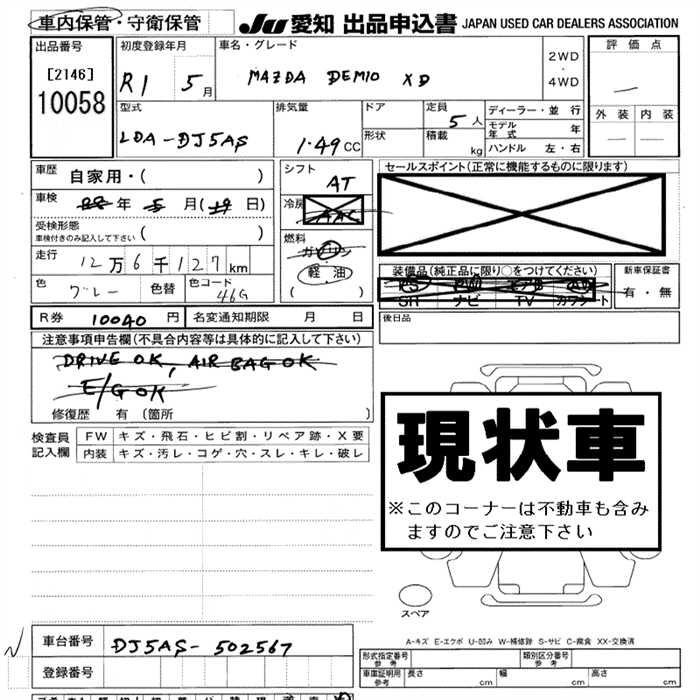 車内保管・守衛保管
JU 愛知 出品申込書 JAPAN USED CAR DEALERS ASSOCIATION
出品番号
[2146]
10058
初度登録年月
R1 5月
車名・グレード
MAZDA DEMIO XD
2WD
・
4WD
評価点
—
外装 内装
— —
型式
LDA-DJ5AS
排気量
1.49CC
ドア
形状
定員
5人
積載
kg
ディーラー・並行
モデル年式 年
ハンドル 左・右
車歴
自家用・( )
車検
年 5月(19日)
受検形態
車検付きのみ記入して下さい ( )
走行
12万6千127km
色
グレー
色替
色コード
46G
シフト
AT
冷房
AAC
燃料
ガソリン
軽油
( )
セールスポイント(正常に機能するものに限ります)
装備品(純正品に限り○をつけてください)
PS PW エアB AW
SR ナビ TV カワシート
新車保証書
有・無
R券 10040円
名変通知期限 月 日
後日品
注意事項申告欄(不具合内容等は具体的に記入して下さい)
DRIVE OK, AIR BAG OK
E/G OK
修復歴 有 (箇所 )
検査員
記入欄
FW キズ・飛石・ヒビ割・リペア跡・X要
内装 キズ・汚レ・コゲ・穴・スレ・キレ・破レ
現状車
※このコーナーは不動車も含み
ますのでご注意下さい
スペア
A-キズ E-エクボ U-凹み W-補修跡 S-サビ C-腐食 XX-交換済
車台番号 DJ5AS-502567
登録番号
形式指定番号
参考
類別区分番号
参考
車庫証明用
参考
長さ cm 幅 cm 高さ cm